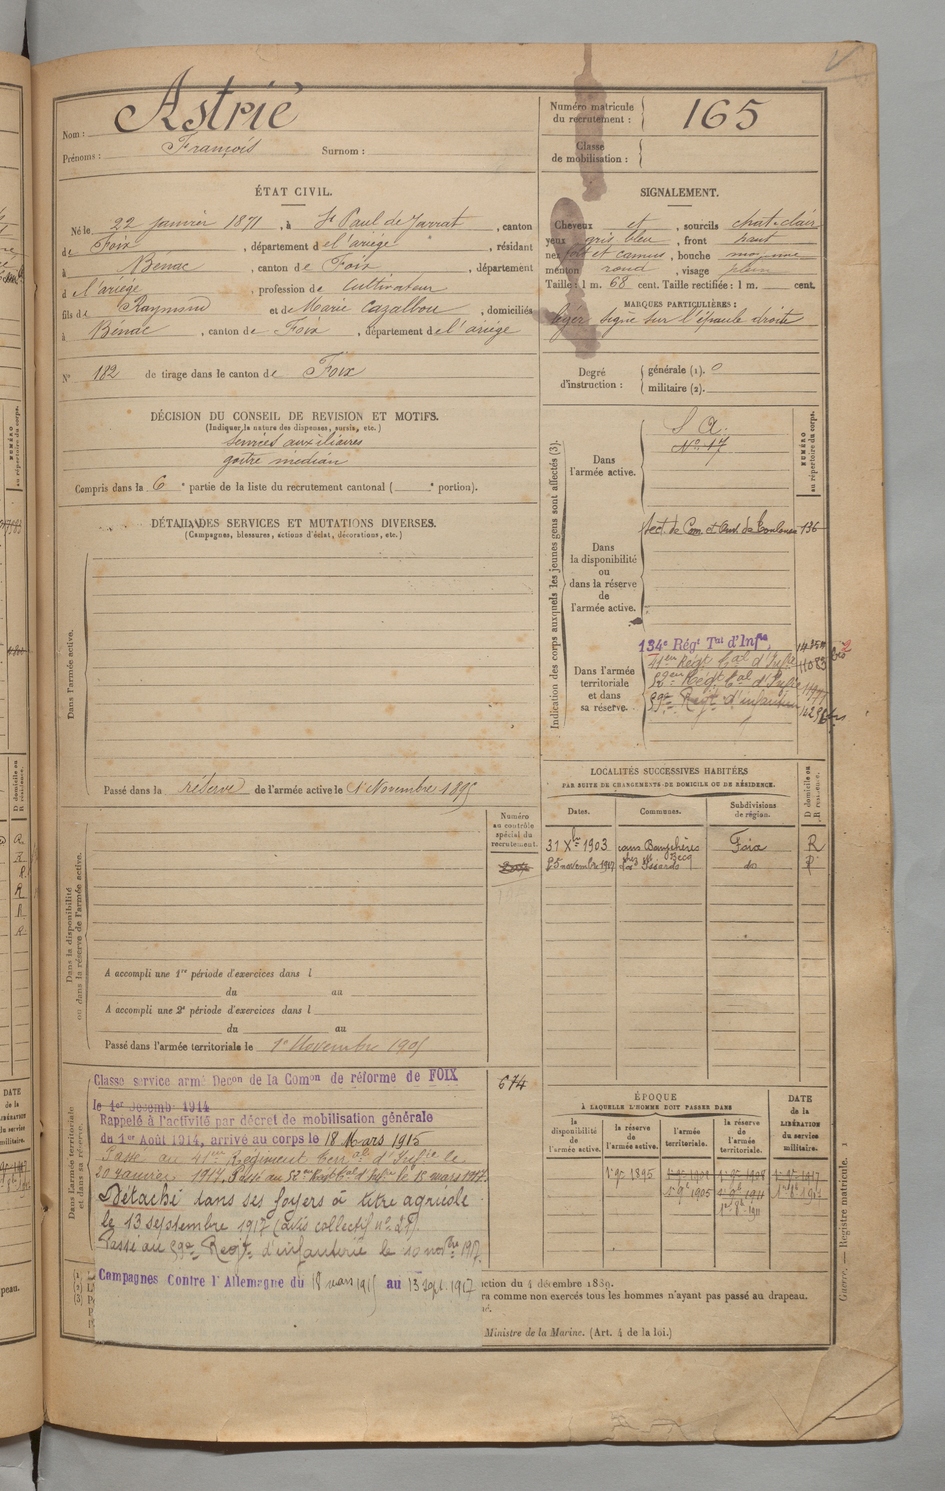 Nom : Astrié
Prénoms : François Surnom :
Numéro matricule
du recrutement : 165
Classe
de mobilisation :
ÉTAT CIVIL.
Né le 22 janvier 1871, à St Paul de Jarrat, canton
de Foix, département de l'ariège, résidant
à Bénac, canton de Foix, département
d l'ariège, profession de cultivateur
fils de Raymond et de Marie Cazalbou, domiciliés
à Bénac, canton de Foix, département de l'ariège
N° 182 de tirage dans le canton de Foix
SIGNALEMENT.
Cheveux et, sourcils chat-clair
yeux gris bleu, front haut
nez fort et camus, bouche moyenne
menton rond, visage plein
Taille : 1 m. 68 cent. Taille rectifiée : 1 m. cent.
MARQUES PARTICULIÈRES :
léger signe sur l'épaule droite
Degré
d'instruction :
générale (1). 0
militaire (2).
DÉCISION DU CONSEIL DE REVISION ET MOTIFS.
(Indiquer la nature des dispenses, sursis, etc.)
services auxiliaires
goitre médian
Compris dans la 6e partie de la liste du recrutement cantonal ( e portion).
DÉTAIL DES SERVICES ET MUTATIONS DIVERSES.
(Campagnes, blessures, actions d'éclat, décorations, etc.)
Dans l'armée active.
Passé dans la réserve de l'armée active le 1er Novembre 1895
Indication des corps auxquels les jeunes gens sont affectés (3).
NUMÉRO
au répertoire du corps.
Dans
l'armée active.
S A.
N° 17
Dans
la disponibilité
ou
dans la réserve
de
l'armée active.
Sect. de Com. et Ouv. de Toulouse 136
Dans l'armée
territoriale
et dans
sa réserve.
134e Régt Tal d'Infie
41em Régt Cal d'Infie 11083
52em Régt Cal d'Infie
59e Regt d'infanterie
LOCALITÉS SUCCESSIVES HABITÉES
PAR SUITE DE CHANGEMENTS DE DOMICILE OU DE RÉSIDENCE.
Dates. Communes. Subdivisions
de région.
D domicile ou
R résidence.
31 Xbre 1903 Foix R
25 novembre 1917 do R
Numéro
au contrôle
spécial du
recrutement.
Dans la disponibilité
ou dans la réserve de l'armée active.
A accompli une 1re période d'exercices dans l
du au
A accompli une 2e période d'exercices dans l
du au
Passé dans l'armée territoriale le 1er Novembre 1905
674
Dans l'armée territoriale
et dans sa réserve.
Classé service armé Decon de la Comon de réforme de FOIX
le 1er Décemb 1914
Rappelé à l'activité par décret de mobilisation générale
du 1er Août 1914, arrivé au corps le 18 Mars 1915
Passé au 41em Régiment Terral d'Infie le
20 janvier 1917. Passé au 52em Regt Cal d'Infie le 15 mars 1917.
Détaché dans ses foyers à titre agricole
le 13 septembre 1917 (avis collectif n° 25)
Passé au 59e Regt d'infanterie le 10 novbre 1917.
Campagnes Contre l'Allemagne du 18 mars 1915 au 13 sept. 1917
ÉPOQUE
À LAQUELLE L'HOMME DOIT PASSER DANS
la
disponibilité
de
l'armée active.
la réserve
de
l'armée active.
l'armée
territoriale.
la réserve
de
l'armée
territoriale.
DATE
de la
LIBÉRATION
du service
militaire.
1er 9bre 1895
1er 9bre 1905
ction du 4 décembre 1889.
ra comme non exercés tous les hommes n'ayant pas passé au drapeau.
Ministre de la Marine. (Art. 4 de la loi.)
Guerre. — Registre matricule. 1